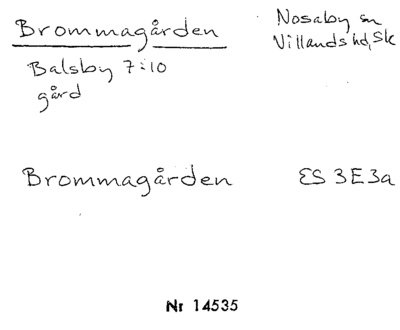 Brommagården
Nosaby sn
Villands hd, Sk
Balsby 7:10
gård
Brommagården
ES 3E3a
Nr 14535